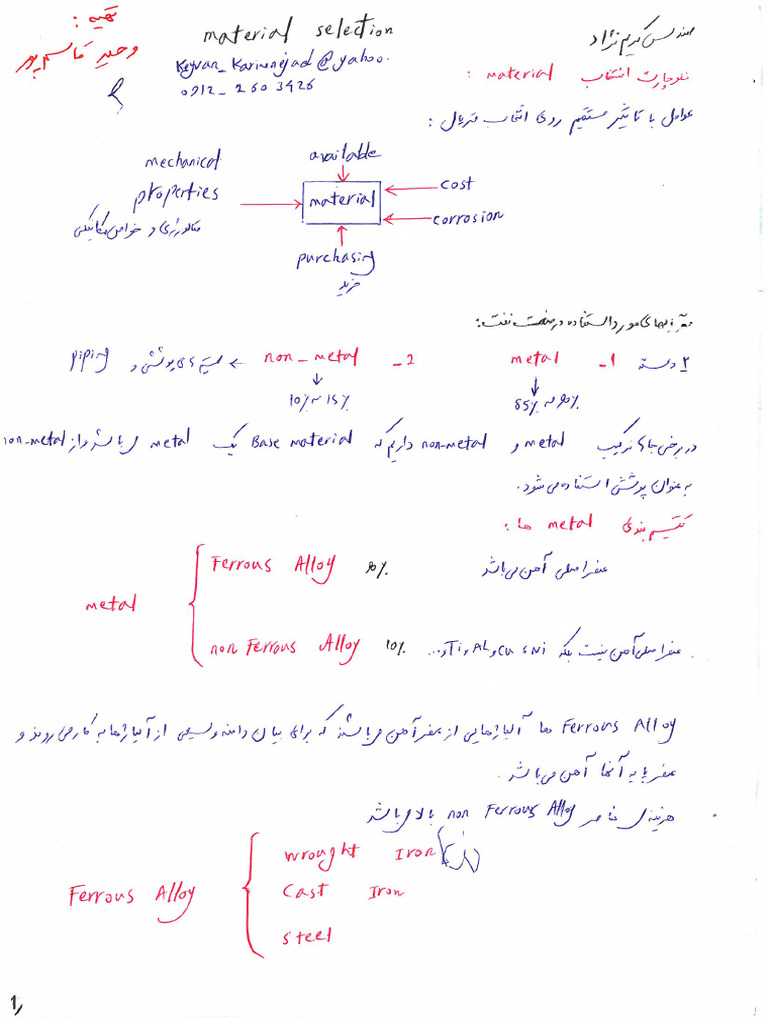 تهیه :
وحید قاسم پور
material selection
Keyvan_Karimnejad@yahoo.
0912_2603426
مهندس کریم نژاد
فلوچارت انتخاب material :
عوامل با تاثیر مستقیم روی انتخاب متریال :
available
mechanical properties
material
cost
corrosion
متالورژی و خواص مکانیکی
purchasing
خرید
متریالهای مورد استفاده در صنعت نفت :
2 دسته 1_ metal 2_ non_metal ← سیستم های پوششی و piping
85% تا 90%
10% تا 15%
در برخی جاها ترکیب metal و non-metal داریم که Base material یک metal می باشد و از non-metal
به عنوان پوشش استفاده می شود.
تقسیم بندی metal ها :
metal
Ferrous Alloy 90% عنصر اصلی آهن می باشد
non Ferrous Alloy 10% عنصر اصلی آهن نیست بلکه Ni و Cu و AL و Ti و...
Ferrous Alloy ها آلیاژهایی از عنصر آهن می باشند که برای بیان دامنه وسیعی از آلیاژها به کار می روند و
عنصر پایه آنها آهن می باشد.
هزینه ی عناصر non Ferrous Alloy بالا می باشد
Ferrous Alloy
wrought Iron
Cast Iron
steel
1